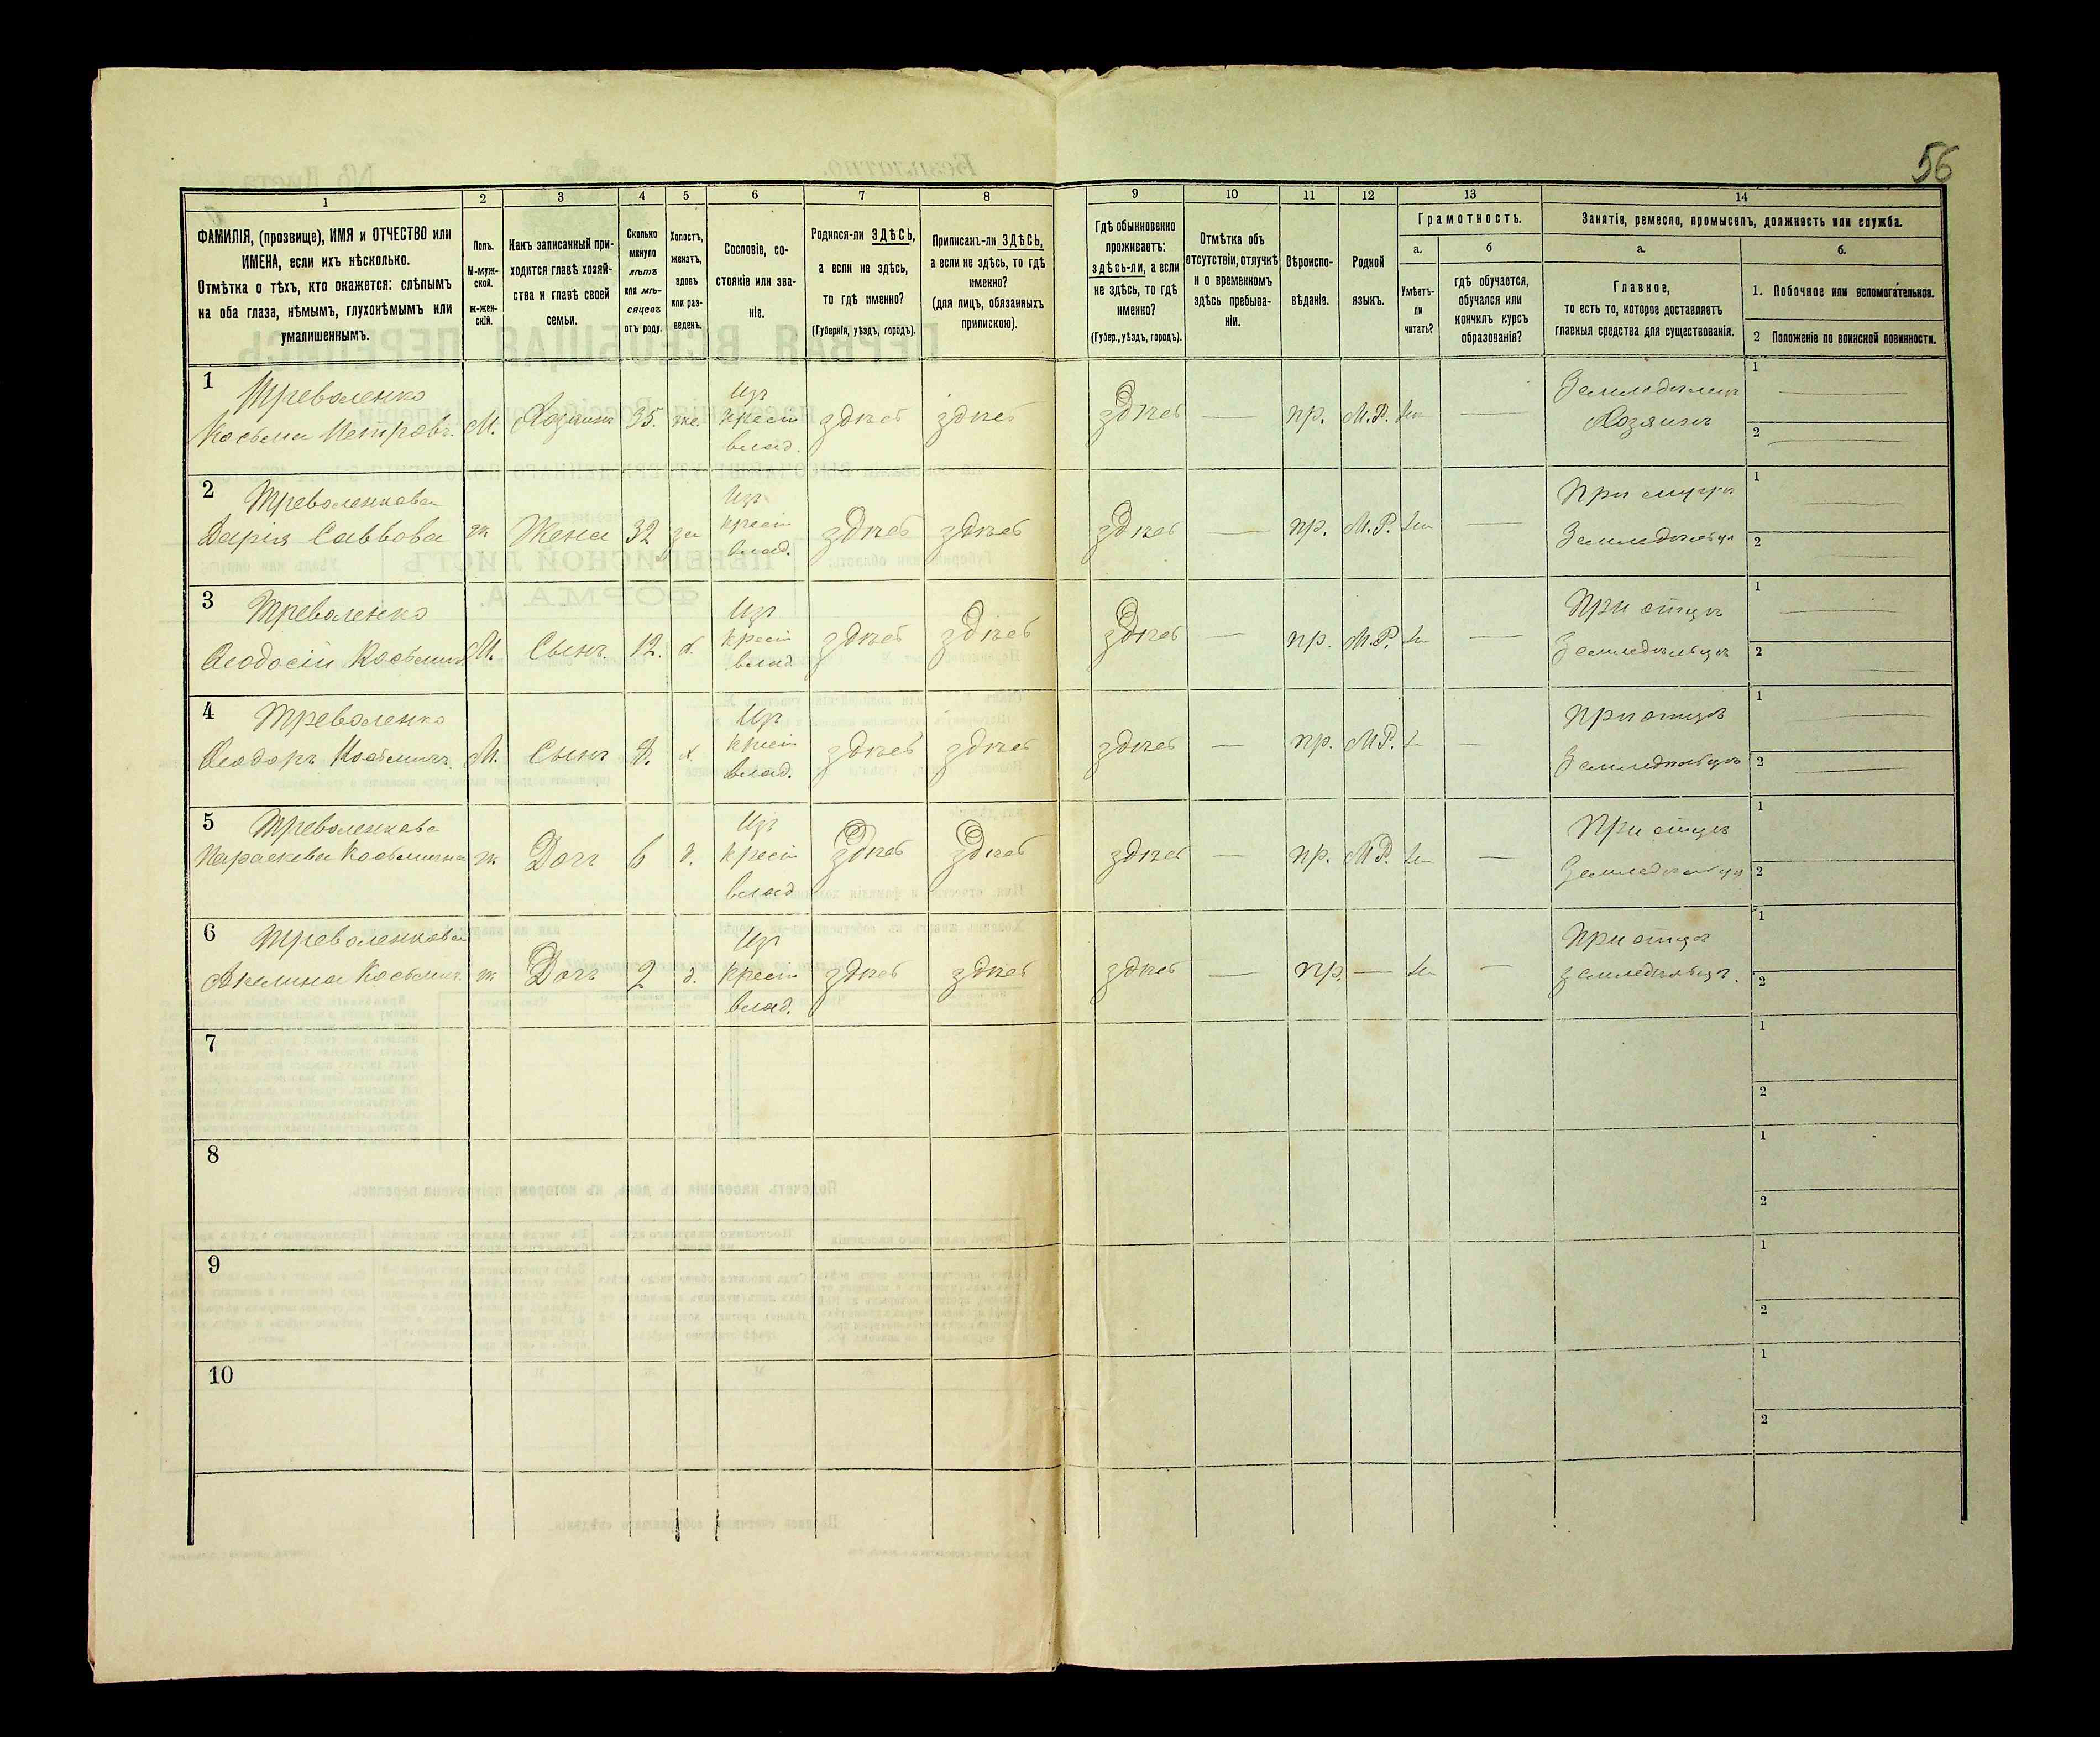 56
1 2 3 4 5 6 7 8 9 10 11 12 13 14
ФАМИЛІЯ, (прозвище), ИМЯ и ОТЧЕСТВО или
ИМЕНА, если ихъ нѣсколько.
Отмѣтка о тѣхъ, кто окажется: слѣпымъ
на оба глаза, нѣмымъ, глухонѣмымъ или
умалишеннымъ.
Полъ.
М-муж-
ской.
ж-жен-
скій.
Какъ записанный при-
ходится главѣ хозяй-
ства и главѣ своей
семьи.
Сколько
минуло
лѣтъ
или мѣ-
сяцевъ
отъ роду.
Холостъ,
женатъ,
вдовъ
или раз-
веденъ.
Сословіе, со-
стояніе или зва-
ніе.
Родился-ли ЗДѢСЬ,
а если не здѣсь,
то гдѣ именно?
(Губернія, уѣздъ, городъ).
Приписанъ-ли ЗДѢСЬ,
а если не здѣсь, то гдѣ
именно?
(для лицъ, обязанныхъ
припискою).
Гдѣ обыкновенно
проживаетъ:
здѣсь-ли, а если
не здѣсь, то гдѣ
именно?
(Губер., уѣздъ, городъ).
Отмѣтка объ
отсутствіи, отлучкѣ
и о временномъ
здѣсь пребыва-
ніи.
Вѣроиспо-
вѣданіе.
Родной
языкъ.
Грамотность.
а.
Умѣетъ-
ли
читать?
б
гдѣ обучается,
обучался или
кончилъ курсъ
образованія?
Занятіе, ремесло, промыселъ, должность или служба.
а.
Главное,
то есть то, которое доставляетъ
главныя средства для существованія.
б.
1. Побочное или вспомогательное.
2 Положеніе по воинской повинности.
1 Треваленко
Косьма Петровъ. М. Хозяинъ 35. же. Изъ крест влад. здѣсь здѣсь здѣсь — пр. М.Р. — Земледѣлецъ Хозяинъ 1 2
2 Треваленкова
Дарія Саввова ж Жена 32 за Изъ крест влад. здѣсь здѣсь здѣсь — пр. М.Р. — При мужѣ Земледѣльцѣ 1 2
3 Треваленко
Ѳеодосій М. Сынъ. 12. х. Изъ крест влад здѣсь здѣсь здѣсь — пр. М.Р. — При отцѣ Земледѣльцѣ 1 2
4 Треваленко
Ѳеодоръ Косьмичъ. М. Сынъ х. Изъ крест влад. здѣсь здѣсь здѣсь — пр. М.Р. — При отцѣ Земледѣльцѣ 1 2
5 Треваленкова
Параскева Косьмична ж Доч 6 д. Изъ крест влад здѣсь здѣсь здѣсь — пр. М.Р. — При отцѣ Земледѣльцѣ 1 2
6 Треваленкова
Акелина ж Дочь 2 д. Изъ крест влад. здѣсь здѣсь здѣсь — пр. — — При отцѣ земледѣльцѣ. 1 2
7 1 2
8 1 2
9 1 2
10 1 2